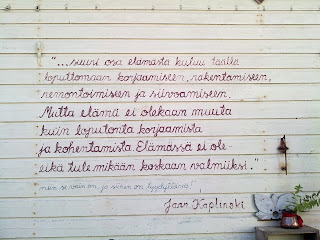 "...suuri osa elämästä kuluu täällä
loputtomaan korjaamiseen, rakentamiseen,
remontoimiseen ja siivoamiseen.
Mutta elämä ei olekaan muuta
kuin loputonta korjaamista
ja kohentamista. Elämässä ei ole-
eikä tule mikään koskaan valmiiksi."
niin se vain on ja siihen on tyydyttävä!
Jaan Kaplinski